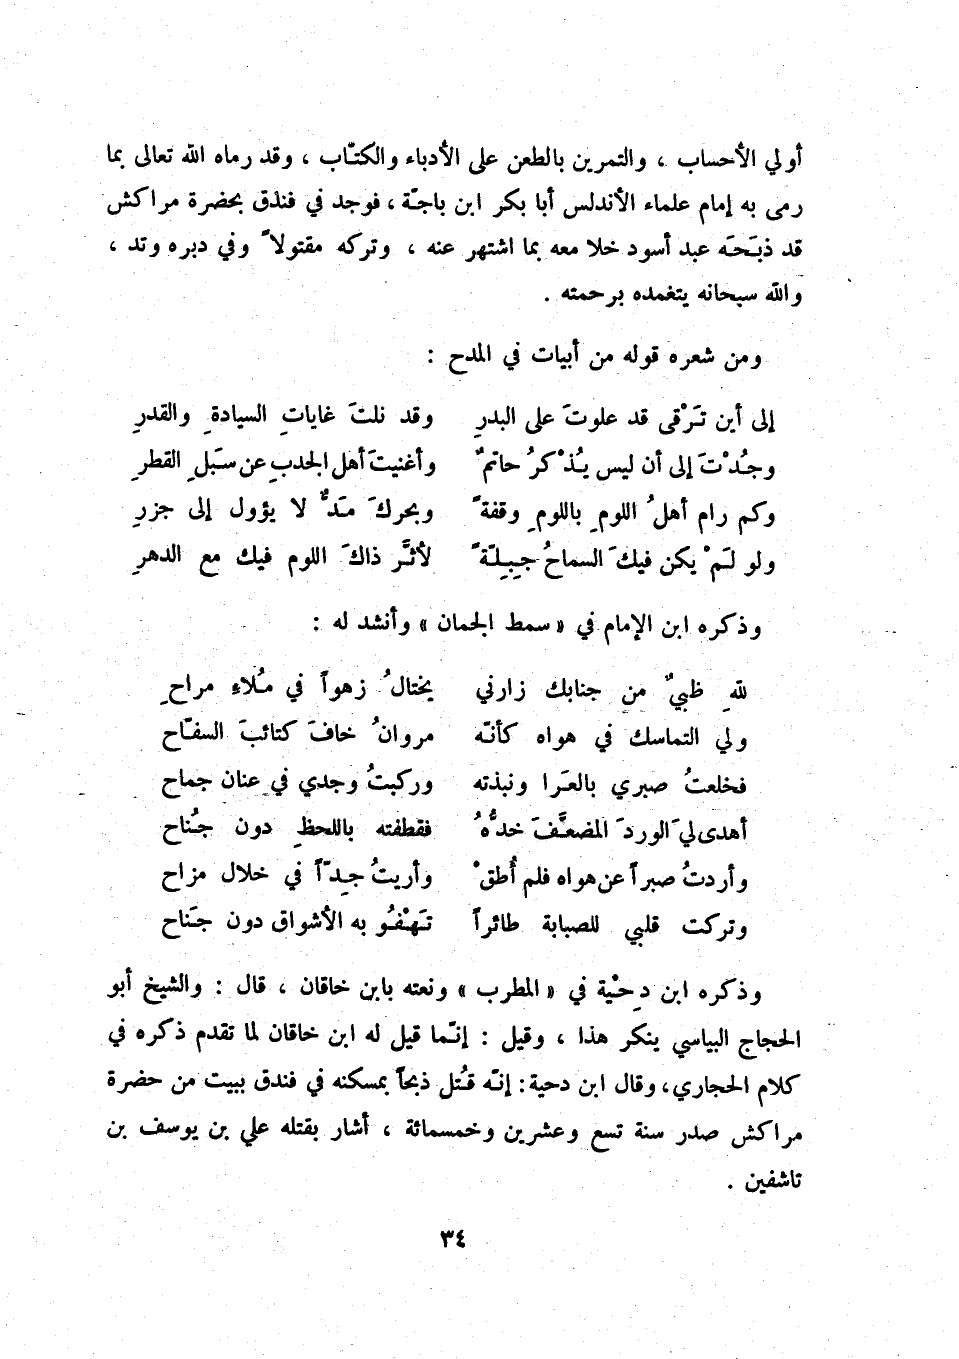 أولي الأحساب ، والتمرين بالطعن على الأدباء والكتّاب ، وقد رماه الله تعالى بما
رمى به إمام علماء الأندلس أبا بكر ابن باجـّة ، فوجد في فندق بحضرة مراكش
قد ذبـَحـَه عبد أسود خلا معه بما اشتهر عنه ، وتركه مقتولاً وفي دبره وتد ،
والله سبحانه يتغمده برحمته .
ومن شعره قوله من أبيات في المدح :
إلى أين تـَرْقى قد علوتَ على البدرِ وقد نلتَ غاياتِ السيادةِ والقدرِ
وجـُدْتَ إلى أن ليس يـُذْكرُ حاتمٌ وأغنيتَ أهل الجدبِ عن سـَبلِ القطرِ
وكم رام أهلُ اللومِ باللومِ وقفةً وبحركَ مـَدٌّ لا يؤول إلى جزرِ
ولو لـَمْ يكن فيكَ السماحُ جـِبـِلـّةً لأثـَّر ذاكَ اللوم فيك مع الدهرِ
وذكره ابن الإمام في « سمط الجمان » وأنشد له :
للهِ ظبيٌ من جنابك زارني يختالُ زهواً في مـُلاءِ مراحِ
ولي التماسك في هواه كأنـّه مروانُ خافَ كتائبَ السفـّاح
فخلعتُ صبري بالعـَرا ونبذته وركبتُ وجدي في عنان جماح
أهدى ليَ الوردَ المضعـَّفَ خدُّهُ فقطفته باللحظِ دون جـُناح
وأردتُ صبراً عن هواه فلم أُطقْ وأريتُ جـِدّاً في خلال مزاح
وتركت قلبي للصبابة طائراً تـَهـْفـُو به الأشواق دون جـَناح
وذكره ابن دِحـْية في « المطرب » ونعته بابن خاقان ، قال : والشيخ أبو
الحجاج البياسي ينكر هذا ، وقيل : إنـّما قيل له ابن خاقان لما تقدم ذكره في
كلام الحجاري، وقال ابن دحية: إنـّه قـُتل ذبحاً بمسكنه في فندق ببيت من حضرة
مراكش صدر سنة تسع وعشرين وخمسمائة ، أشار بقتله علي بن يوسف بن
تاشفين .
٣٤